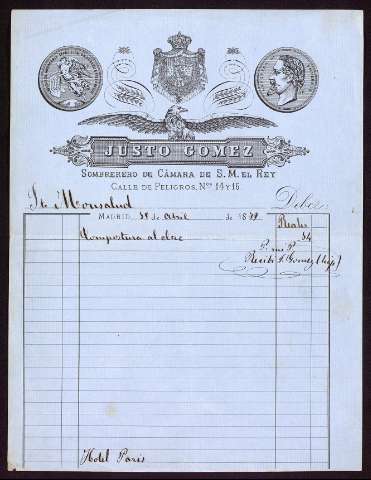 JUSTO GOMEZ
SOMBRERERO DE CÁMARA DE S. M. EL REY
CALLE DE PELIGROS, Nos 14 Y 16
Sr. Monsalud Debe
MADRID, de Abril de 1879
Reales
Compostura al clac 54
Recibí J. Gomez (hijo)
Hotel Paris